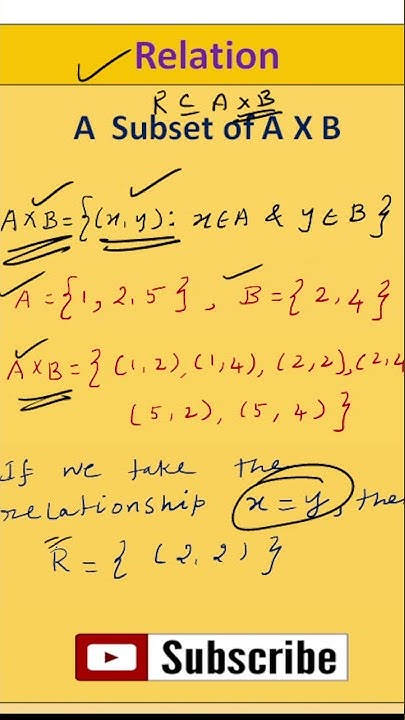 Relation
R ⊆ A × B
A Subset of A X B
A×B = {(x, y): x∈A & y∈B}
A = {1, 2, 5}, B = {2, 4}
A×B = { (1, 2), (1, 4), (2, 2), (2, 4
(5, 2), (5, 4) }
If we take the
relationship x = y, the
R = { (2, 2) }
Subscribe